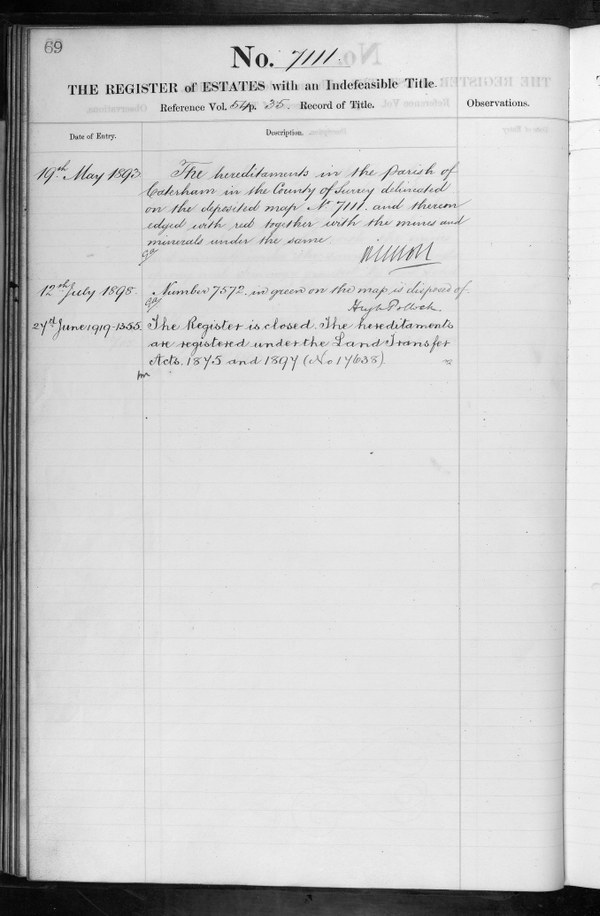 69
No. 7111.
THE REGISTER of ESTATES with an Indefeasible Title.
Reference Vol. 54 p. 35. Record of Title.
Observations.
Date of Entry.
Description.
19th May 1893
The hereditaments in the Parish of
Caterham in the County of Surrey delineated
on the deposited map No 7111. and thereon
edged with red together with the mines and
minerals under the same
12th July 1898.
Number 7572. in green on the map is disposed of.
Hugh Pollock
27th June 1919-1355.
The Register is closed. The hereditaments
are registered under the Land Transfer
Acts. 1875 and 1897 (No 17638)